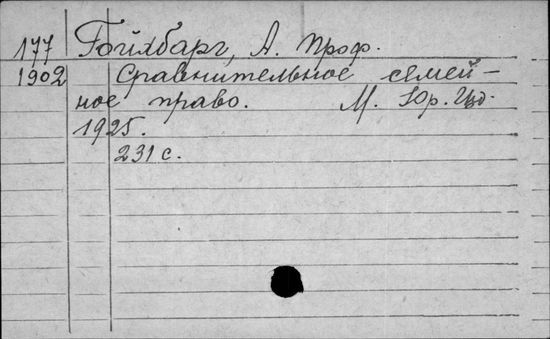 177 Гойхбарг, А. Проф.
1902 Сравнительное семей-
ное право. М. Юр. Изд.
1925.
231 с.